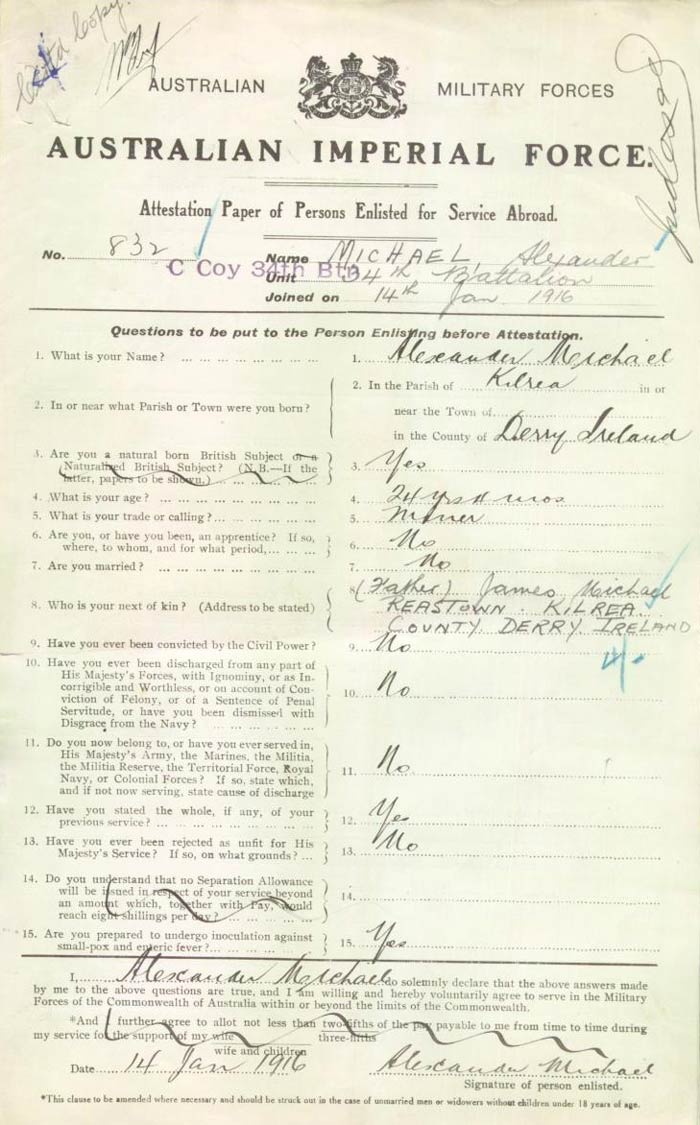 Copy
AUSTRALIAN MILITARY FORCES
AUSTRALIAN IMPERIAL FORCE.
Attestation Paper of Persons Enlisted for Service Abroad.
No. 832 Name MICHAEL, Alexander
C Coy 34th Btn Unit 34th Battalion
Joined on 14th Jan 1916
Questions to be put to the Person Enlisting before Attestation.
1. What is your Name? ... 1. Alexander Michael
2. In or near what Parish or Town were you born? 2. In the Parish of Kilrea in or
near the Town of
in the County of Derry Ireland
3. Are you a natural born British Subject or a
Naturalized British Subject? (N.B.—If the
latter, papers to be shown.) ... 3. Yes
4. What is your age? ... 4. 24 yrs 11 mos
5. What is your trade or calling? ... 5. Miner
6. Are you, or have you been, an apprentice? If so,
where, to whom, and for what period, ... 6. No
7. Are you married? ... 7. No
8. Who is your next of kin? (Address to be stated) 8. (Father) James Michael
REASTOWN. KILREA
COUNTY DERRY IRELAND
9. Have you ever been convicted by the Civil Power? 9. No
10. Have you ever been discharged from any part of
His Majesty's Forces, with Ignominy, or as In-
corrigible and Worthless, or on account of Con-
viction of Felony, or of a Sentence of Penal
Servitude, or have you been dismissed with
Disgrace from the Navy? ... 10. No
11. Do you now belong to, or have you ever served in,
His Majesty's Army, the Marines, the Militia,
the Militia Reserve, the Territorial Force, Royal
Navy, or Colonial Forces? If so, state which,
and if not now serving, state cause of discharge 11. No
12. Have you stated the whole, if any, of your
previous service? ... 12. Yes
13. Have you ever been rejected as unfit for His
Majesty's Service? If so, on what grounds? ... 13. No
14. Do you understand that no Separation Allowance
will be issued in respect of your service beyond
an amount which, together with Pay, would
reach eight shillings per day? ... 14.
15. Are you prepared to undergo inoculation against
small-pox and enteric fever? ... 15. Yes
I, Alexander Michael do solemnly declare that the above answers made
by me to the above questions are true, and I am willing and hereby voluntarily agree to serve in the Military
Forces of the Commonwealth of Australia within or beyond the limits of the Commonwealth.
*And I further agree to allot not less than two-fifths of the pay payable to me from time to time during
three-fifths
my service for the support of my wife
wife and children
Date 14 Jan 1916 Alexander Michael
Signature of person enlisted.
*This clause to be amended where necessary and should be struck out in the case of unmarried men or widowers without children under 18 years of age.